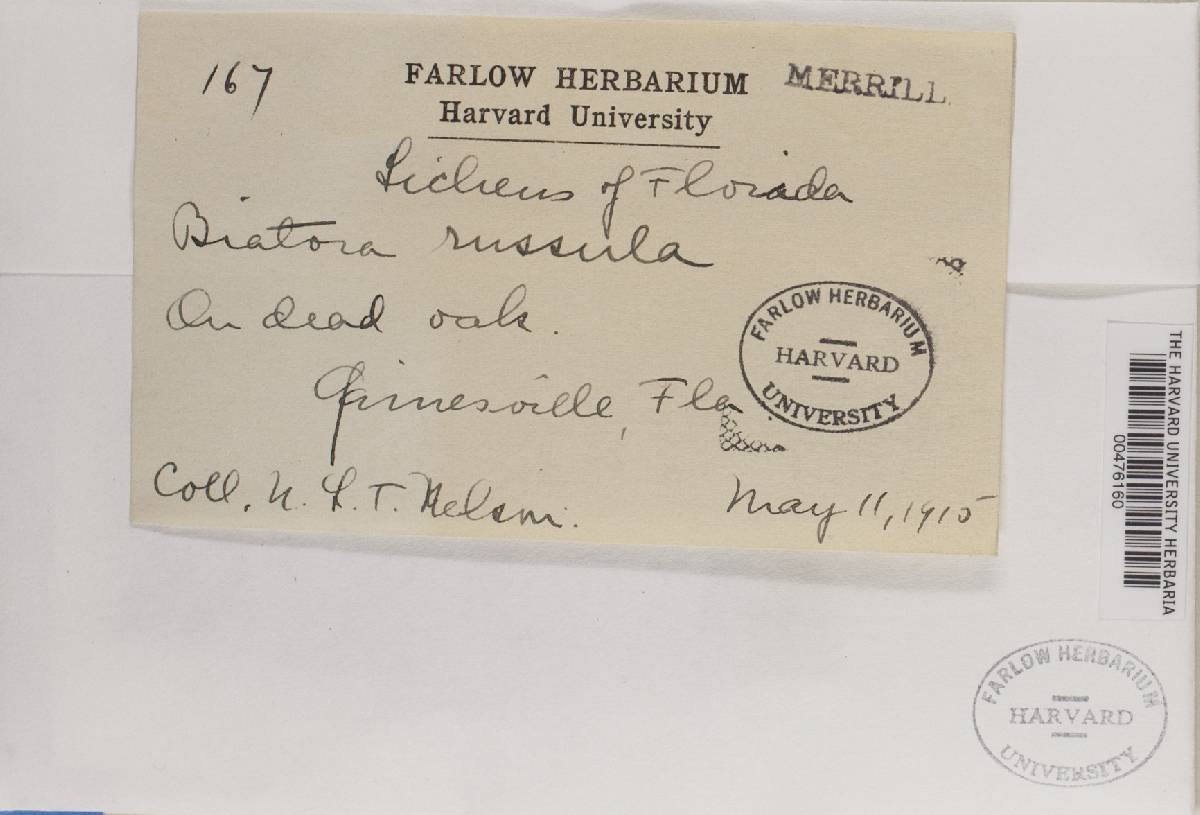 167
FARLOW HERBARIUM
MERRILL
Harvard University
Lichens of Florida
Biatora russula
On dead oak.
Gainesville, Fla.
Coll. N. L. T. Nelson.
May 11, 1915
FARLOW HERBARIUM
HARVARD
UNIVERSITY
THE HARVARD UNIVERSITY HERBARIA
00476160
FARLOW HERBARIUM
HARVARD
UNIVERSITY